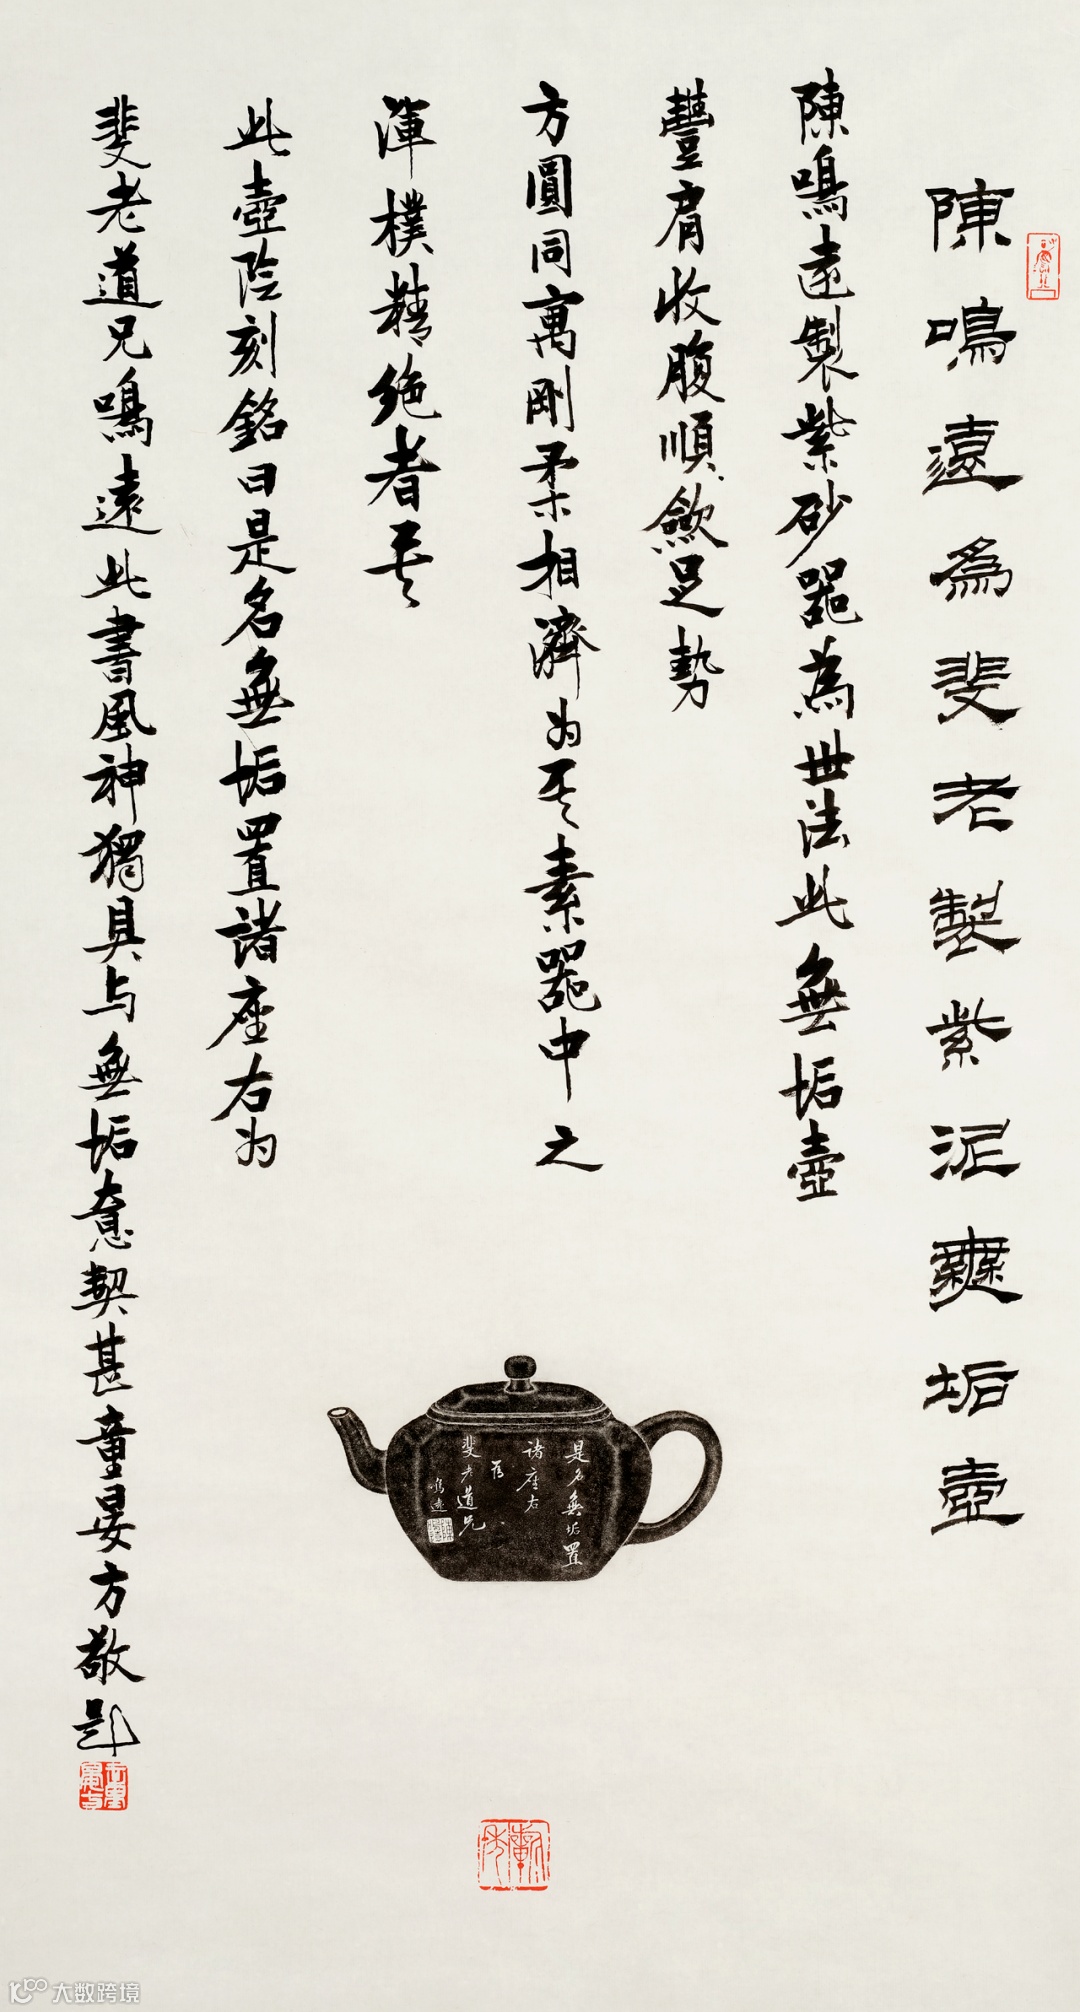 陳鳴遠為斐老製紫泥無垢壺
陳鳴遠製紫砂器為世法此無垢壺
豐肩收腹順歛足勢
方圓同寓剛柔相濟为其素器中之
渾樸精絶者其
此壺陰刻銘曰是名無垢置諸座右为
斐老道兄鳴遠此書風神獨具与無垢意契甚童晏方敬題
是名無垢置
諸座右
為
斐老道兄
鳴遠
大数跨境